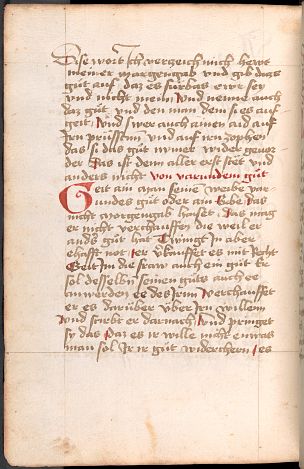 Dise wort Ich verzeich mich hewt
meiner morgengab und gib das
gut auf daz es fürbas ewr sey
und nicht mein Und nenne auch
daz gut und den man dem si es auf
geit Und swer auch ainen aid auf
Irn prüsten und auf irn zophen
das si das gut nimer wider gevor
der Das ist denn aller erst stet und
anders nicht von varundem gut
Geit ain man seine weibe var
undes gut oder ain Erbe das
nicht morgengab haisset Das mag
er nicht verchauffen die weil er
anders gut hat Twingt In aber
ehafft not Er v'kaufft es mit Recht
Geit In die fraw auch ein gut Er
sol desselben seinen guts auch ee
anwerden ee des Irnn Verchauffet
er es darüber uber Irn willenn
Und stirbt er darnach Und pringet
sy das Daz es ir wille nicht enwas
man sol Ir ir gut widerchern Ies